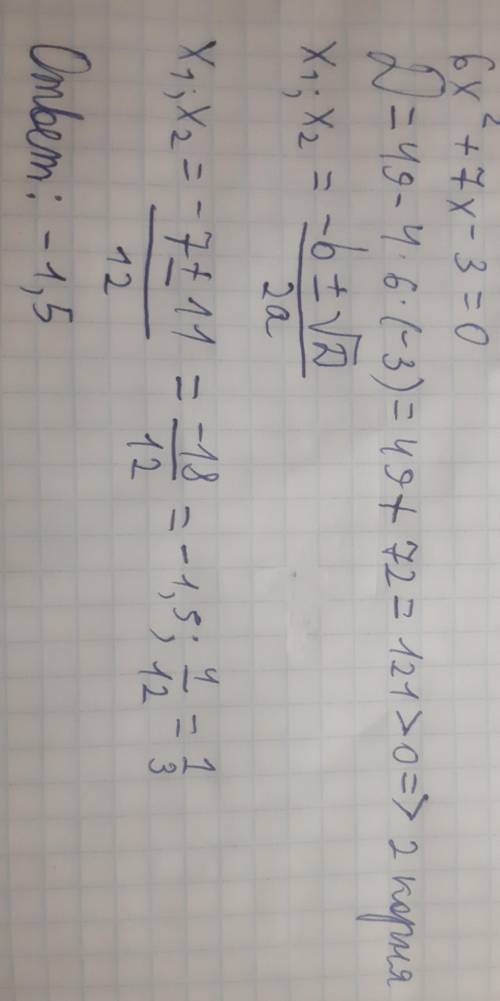 6x² + 7x - 3 = 0
D = 49 - 4 · 6 · (-3) = 49 + 72 = 121 > 0 => 2 корня
x₁; x₂ = -b ± √D / 2a
x₁; x₂ = -7 ± 11 / 12 = -18 / 12 = -1,5; 4 / 12 = 1 / 3
Ответ: -1,5